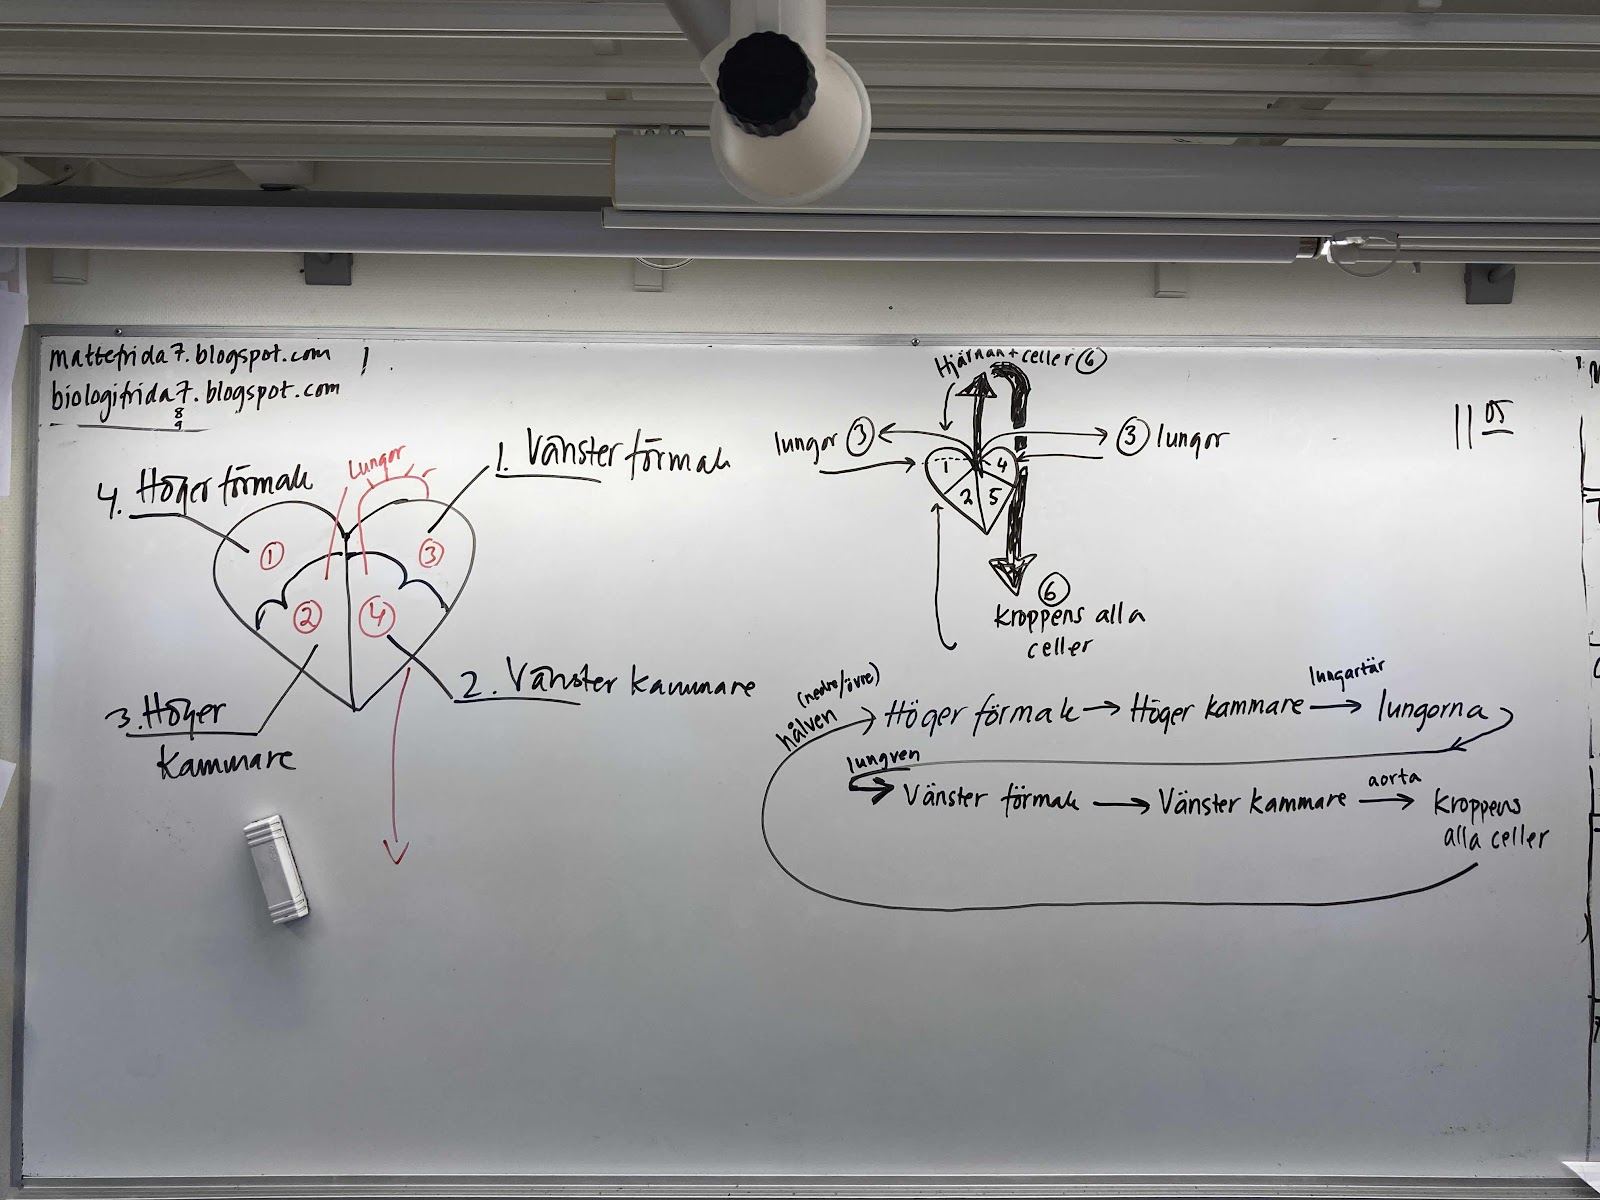 mattefrida7.blogspot.com !
biologifrida7.blogspot.com
8
9
4. Höger förmak
Lungor
1. Vänster förmak
1
3
2
4
3. Höger
kammare
2. Vänster kammare
Hjärnan + celler 6
lungor 3
3 lungor
1
4
2
5
6
Kroppens alla
celler
11 05
hålven (nedre/övre)
Höger förmak → Höger kammare → lungartär lungorna
lungven
Vänster förmak → Vänster kammare → aorta Kroppens
alla celler